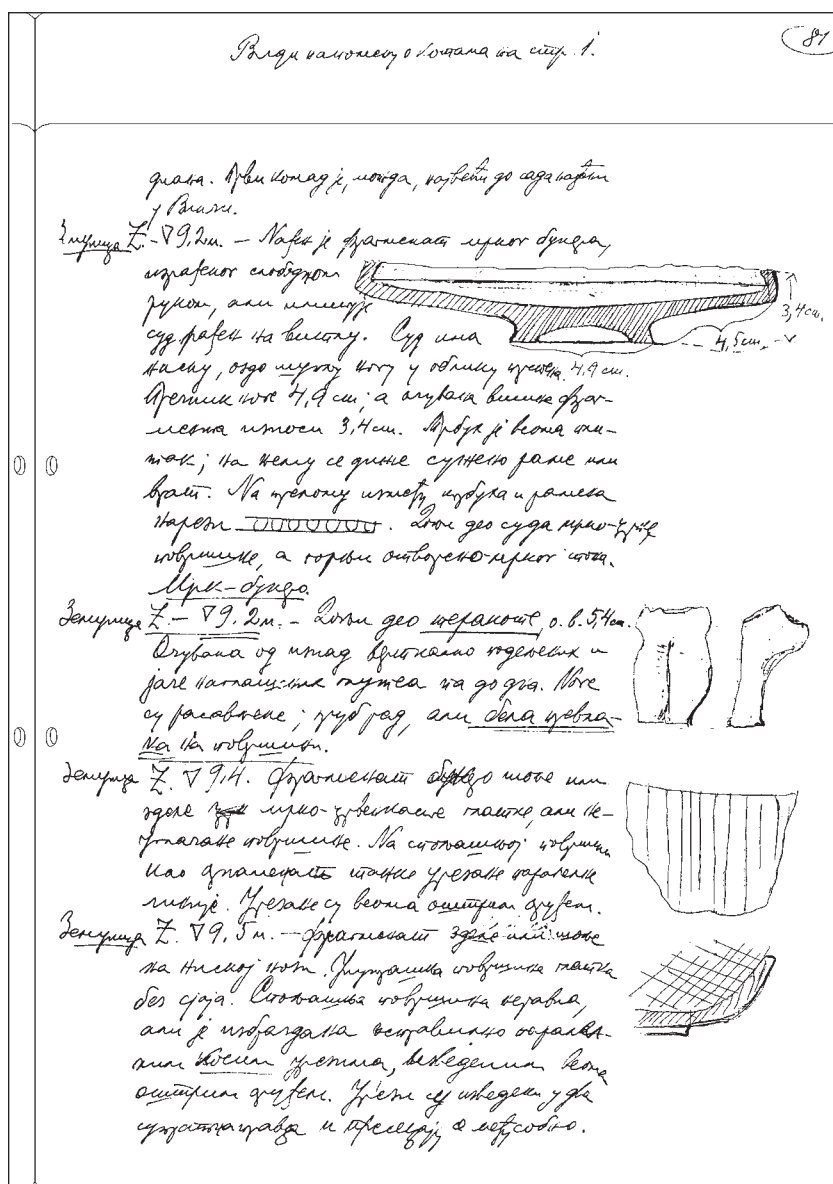 Види напомену о котама на стр. 1.
81
длана. Први комад је, можда, највећи до сада нађени
у Винчи.
Земуница Z. – ∇ 9,2 м. – Нађен је фрагменат мрког букра,
израђеног слободном
руком, али имитује
суд рађен на витлу. Суд има
3,4 cm.
4,5 cm.
ниску, оздо шупљу ногу у облику прстена.
4,9 cm.
Пречник ноге 4,9 cm; а очувана висина фраг-
мента износи 3,4 cm. Трбух је веома пли-
так; на њему се диже сужено раме или
врат. На прелому између трбуха и рамена
нарези. Доњи део суда мрко-црне
површине, а горњи отворено-мрког тона.
Мрк-букро.
Земуница Z – ∇ 9.2 м. – Доњи део теракоте, о. в. 5,4 cm.
Очувана од изнад вертикално подељених и
јаче наглашених глутеа па до дна. Ноге
су растављене; груб рад, али бела превла-
ка на површини.
Земуница Z. ∇ 9,4. Фрагменат букро шоље или
зделе мрко-црвенкасте глатке, али не-
углачане површине. На спољашњој површини
као орнаменат танке урезане паралелне
линије. Урезане су веома оштрим оруђем.
Земуница Z. ∇ 9,5 м. – Фрагменат зделе или шоље
на ниској нози. Унутрашња површина глатка
без сјаја. Спољашња површина неравна,
али је избраздана неправилно паралел-
ним косим урезима, изведеним веома
оштрим оруђем. Урези су изведени у два
супротна правца и пресецају се међусобно.